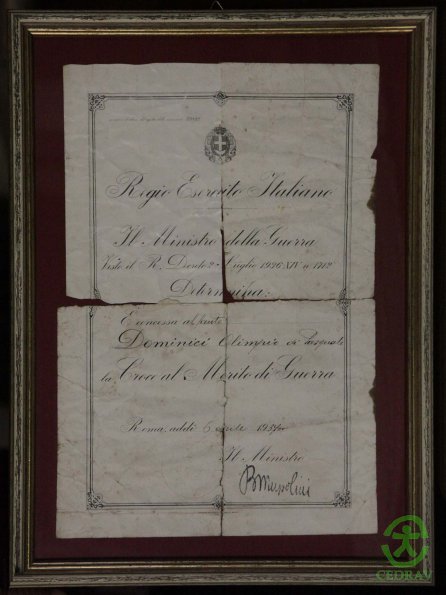 Regio Esercito Italiano
Il Ministro della Guerra
Visto il R. Decreto 2 Luglio 1936 XIV n 1712
Determina:
È concessa al fante
Dominici Olimpio di Pasquale
la Croce al Merito di Guerra
Roma, addì 6 aprile
Il Ministro
CEDRAV